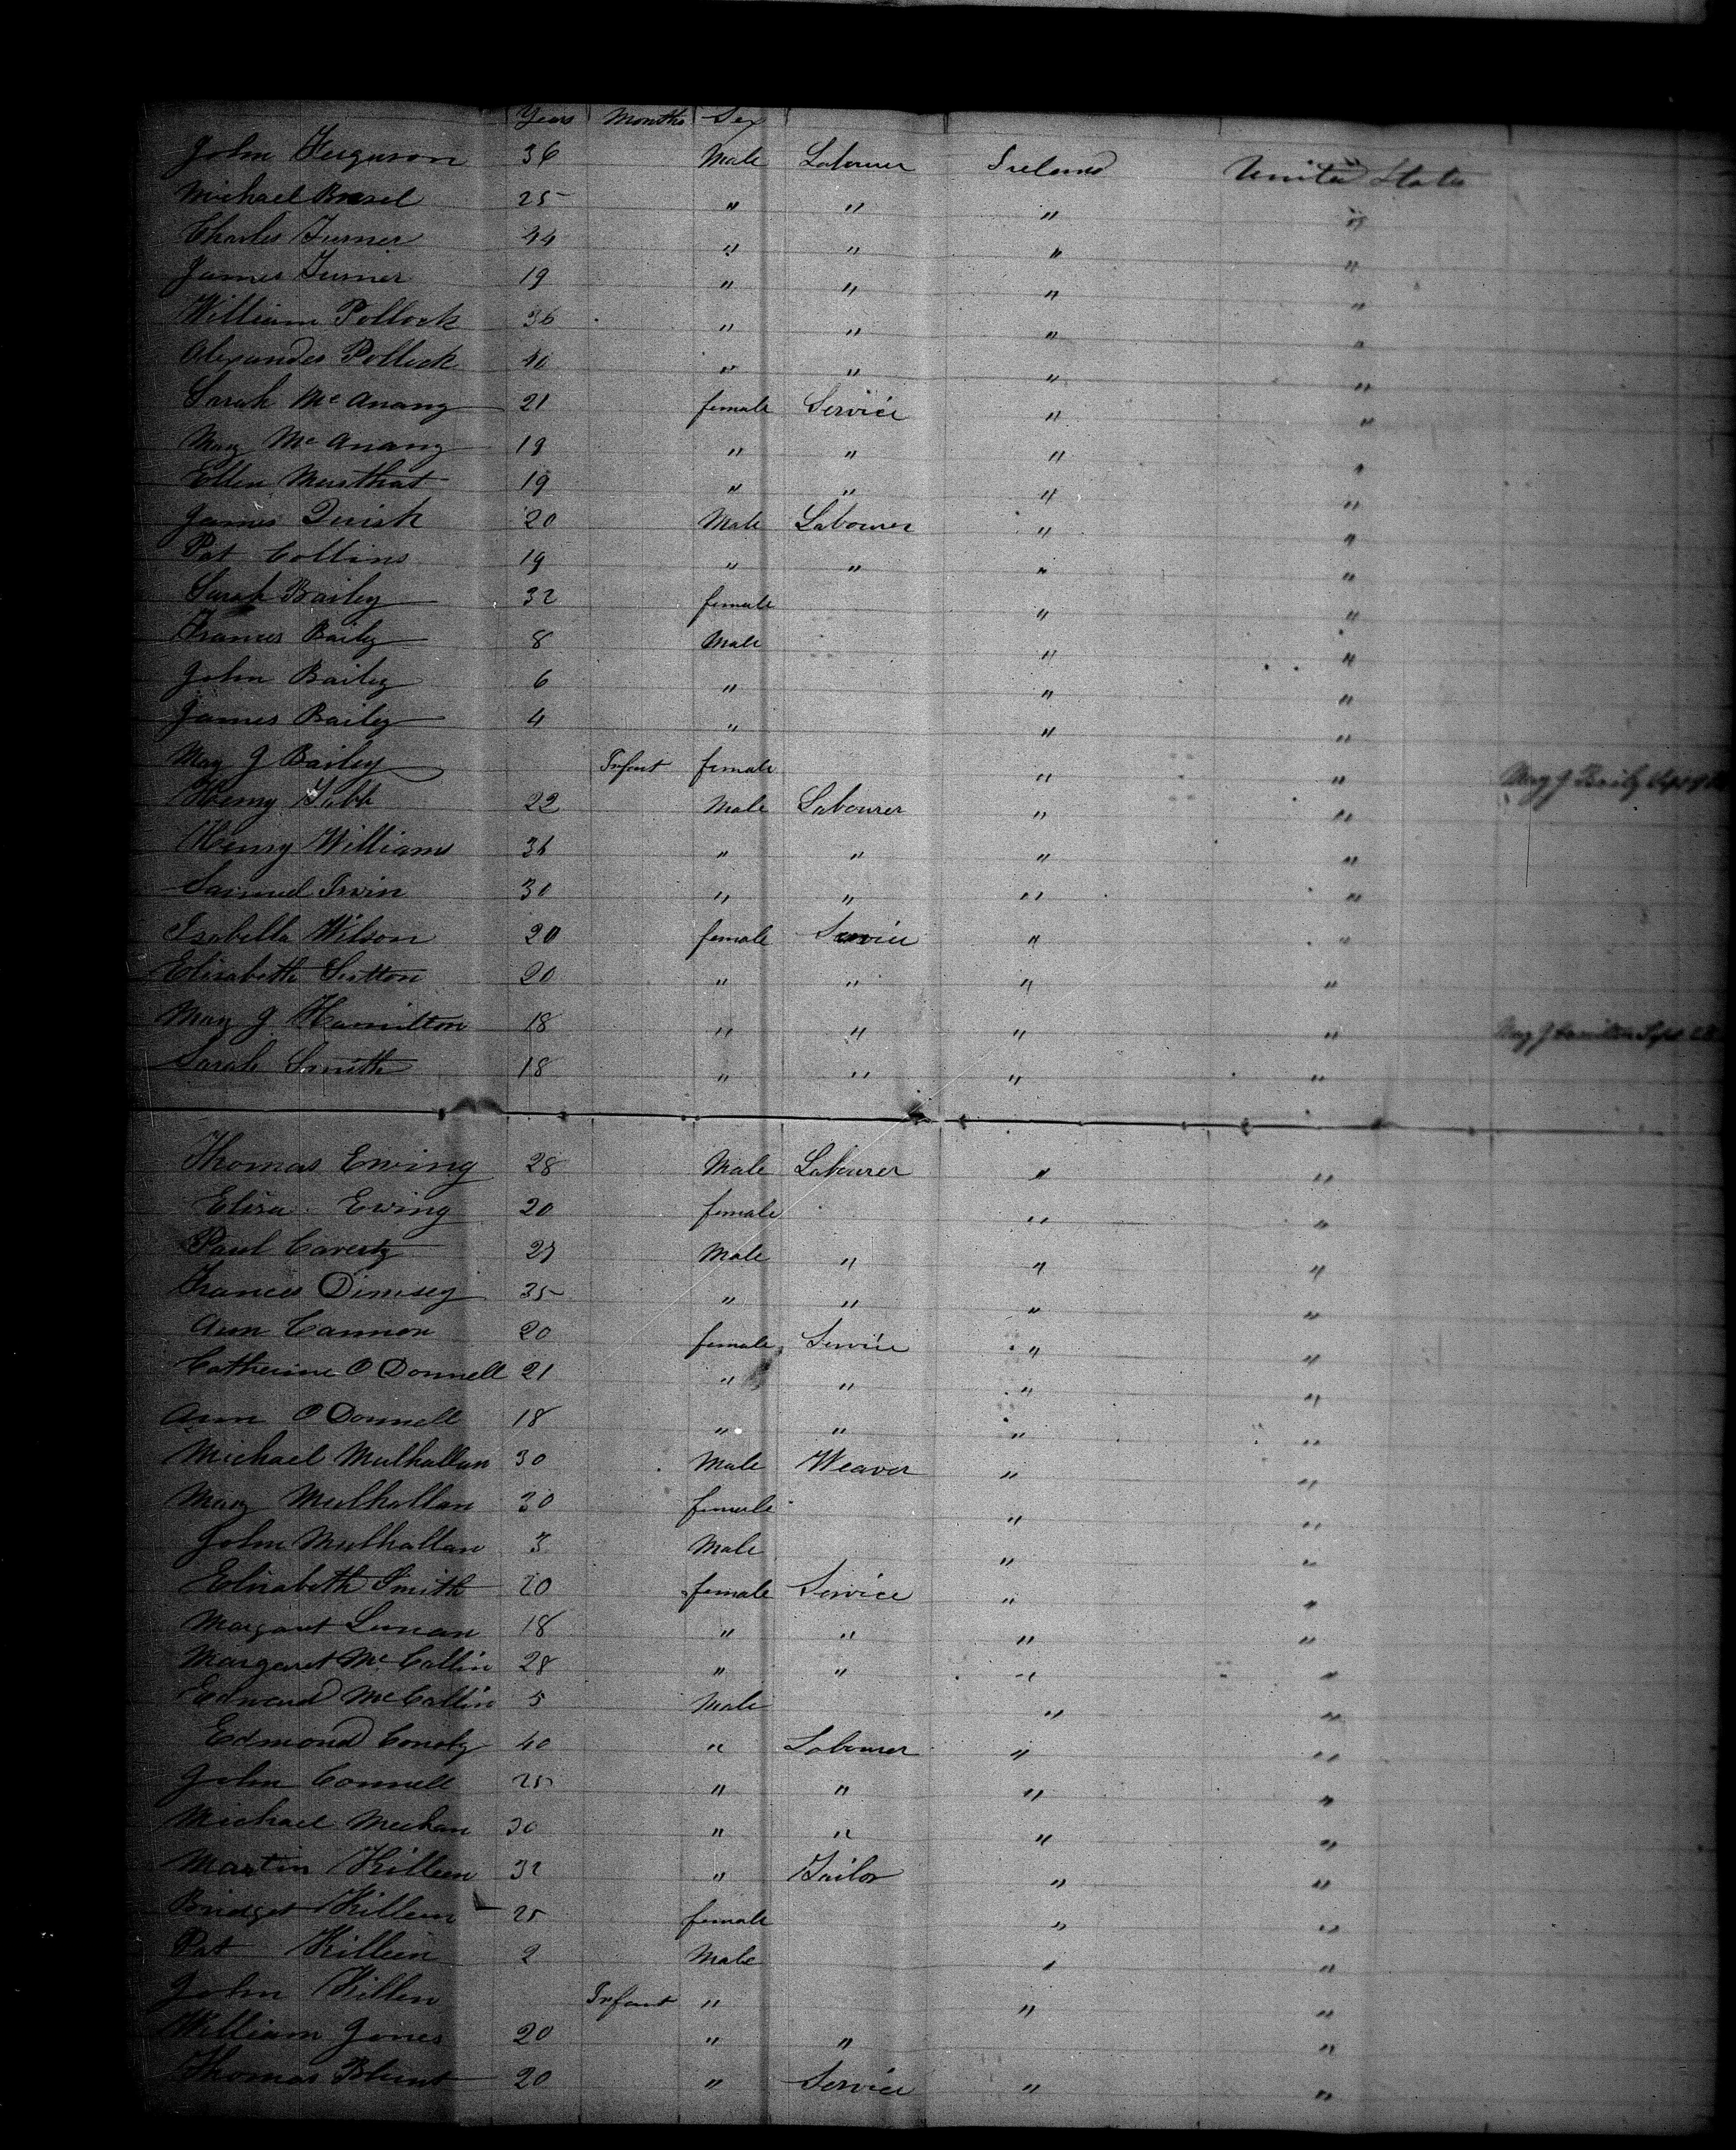 Years Months Sex
John Ferguson 36 Male Labourer Ireland United States
Michael 25 " " " "
Charles Turner 44 " " " "
James Turner 19 " " " "
William Pollock 36 " " " "
Alexander Pollock 40 " " " "
Sarah McAnany 21 female Service " "
Mary McAnany 19 " " " "
Ellen 19 " " " "
James Quirk 20 Male Labourer " "
Pat Collins 19 " " " "
Sarah Bailey 32 female " "
Frances Baily 8 Male " "
John Bailey 6 " " "
James Bailey 4 " " "
May J Bailey Infant female " " May J Baily
Henry 22 Male Labourer " "
Henry Williams 36 " " " "
Samuel Irwin 30 " " " "
Isabella Wilson 20 female Service " "
Elisabeth Sutton 20 " " " "
May J Hamilton 18 " " " " May J Hamilton Sept
Sarah Smith 18 " " " "
Thomas Ewing 28 Male Labourer " "
Elisa Ewing 20 female " "
Paul 27 Male " " "
Frances 35 " " " "
Ann Cannon 20 female Service " "
Catherine O Donnell 21 " " " "
Ann O Donnell 18 " " " "
Michael Mulhallan 30 Male Weaver " "
Mary Mulhallan 30 female " "
John Mulhallan 3 Male " "
Elisabeth Smith 20 female Service " "
Margaret 18 " " " "
Margaret McCallin 28 " " " "
Edward McCallin 5 Male " "
Edmond 40 " Labourer " "
John Connell 25 " " " "
Michael Meehan 30 " " " "
Martin Killeen 32 " Tailor " "
Bridget Killeen 25 female " "
Pat Killeen 2 Male " "
John Killen Infant " " "
William Jones 20 " " "
Thomas Blunt 20 " Service " "